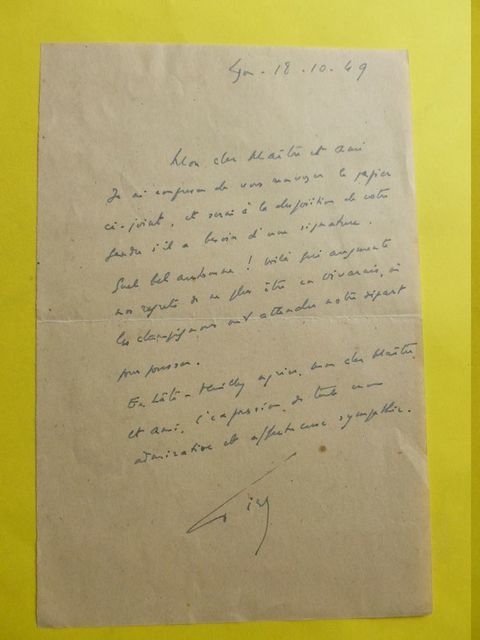 Lyon - 18.10.49
Mon cher Maître et Ami
Je m'empresse de vous renvoyer le papier
ci-joint, et serai à la disposition de votre
gendre s'il a besoin d'une signature.
Quel bel automne ! voilà qui augmente
nos regrets de ne plus être en Vivarais, où
les champignons ont attendu notre départ
pour pousser.
En hâte - Veuillez agréer, mon cher Maître
et Ami, l'expression de toute mon
admirative et affectueuse sympathie.